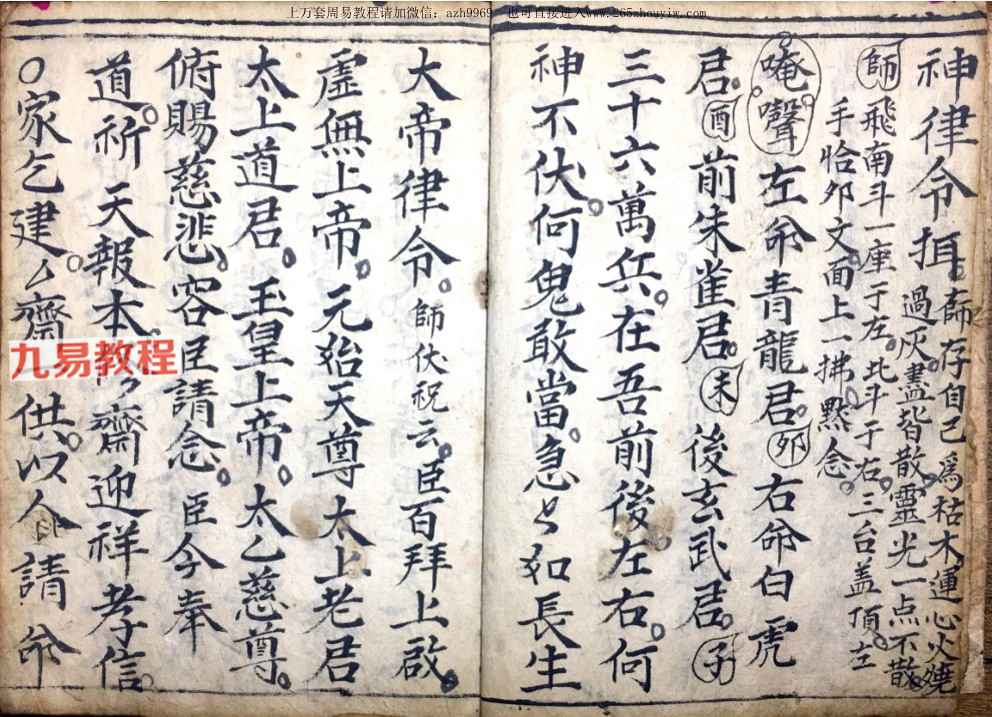 上万套周易教程请加微信：azh9969 也可直接进入www.265zhouyiw.com
神律令揖。師存自己爲枯木運心火燒
過灰。盡皆散靈光一点不散
師飛南斗一座于左。北斗于右。三台盖頂。左
手恰夘文。面上一拂。黙念。
唵聲左命青龍君。夘右命白虎
君。酉前朱雀君。未後玄武君。子
三十六萬兵。在吾前後左右。何
神不伏。何鬼敢當。急〻如長生
大帝律令。師伏祝云。臣百拜上啟。
虛無上帝。元始天尊太上老君
太上道君。玉皇上帝。太乙慈尊。
俯賜慈悲。容臣請念。臣今奉
道祈天報本。齋迎祥孝信
〇家乞建厶齋供。以今請命
九易教程